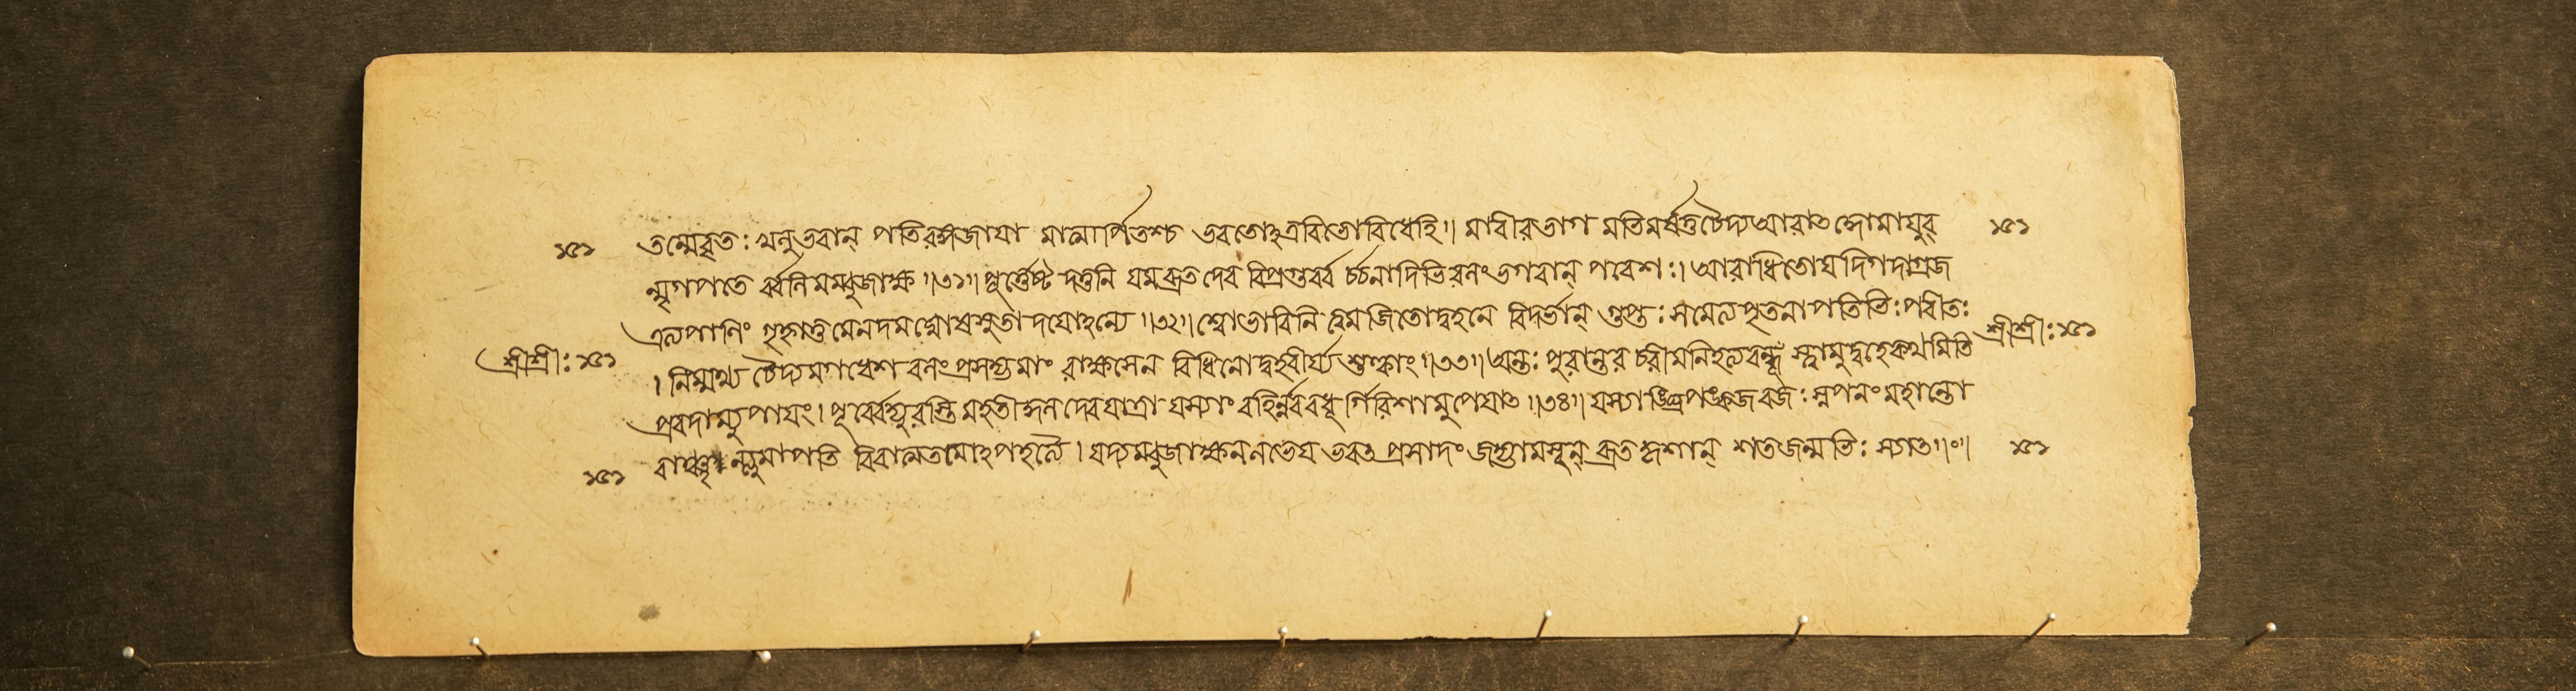 ১৫১ তন্মেবৃতঃ খলুভবান্ পতিরঙ্গজাযা মাত্মার্পিতশ্চ ভবতোঽত্রবিভোবিধেহি৷৷ মাবীরভাগ মভিমর্ষতুচৈদ্যআরাত গোমাযুর্ ১৫১
ন্মৃগপতে র্ব্বনিমমবুজাক্ষ ৷৷৩১৷৷ পূর্ত্তেষ্ট দত্তনি যমব্রতদেব বিপ্রগুবর্ব র্চ্চনাদিভিরলং ভগবান্ পবেশঃ৷ আরাধিতোযদিগদাগ্রজ
এত্যপাণিং গৃহ্ণাতুমেনদমঘোষসুতাদযোঽন্যে ৷৷৩২৷৷ শ্বোভাবিনি ত্বমজিতোদ্বহনে বিদর্ভান্ গুপ্তঃ সমেত্য পৃতনাপতিভিঃ পরীতঃ
শ্রীশ্রীঃ ১৫১ ৷ নিম্মথ্য চৈদ্যমগধেশ বলংপ্রসহ্যমাং রাক্ষসেন বিধিনোদ্বহবীর্য্য শুল্কাং ৷৷৩৩৷৷ অন্তঃ পুরান্তর চরীমনিহত্যবন্ধূঁ স্ত্বামুদ্বহেকথমিতি শ্রীশ্রীঃ ১৫১
প্রবদাম্যুপাযং৷ পূর্ব্বেদ্যুরস্তি মহতীকুলদেবযাত্রা যস্যাং বহির্ন্নববধূ র্গিরিশামুপেযাত ৷৷৩৪৷৷ যস্যাঙ্ঘ্রিপঙ্কজ রজঃ স্নপনং মহান্তো
১৫১ বাঞ্ছন্ত্যুমাপতি রিবাত্মতমোঽপহত্যৈ ৷ যদ্যমবুজাক্ষনলভেয ভবত্ প্রসাদং জহ্যামসূন্ ব্রতকৃশান্ শতজন্মভিঃ স্যাত৷৷০৷৷ ১৫১